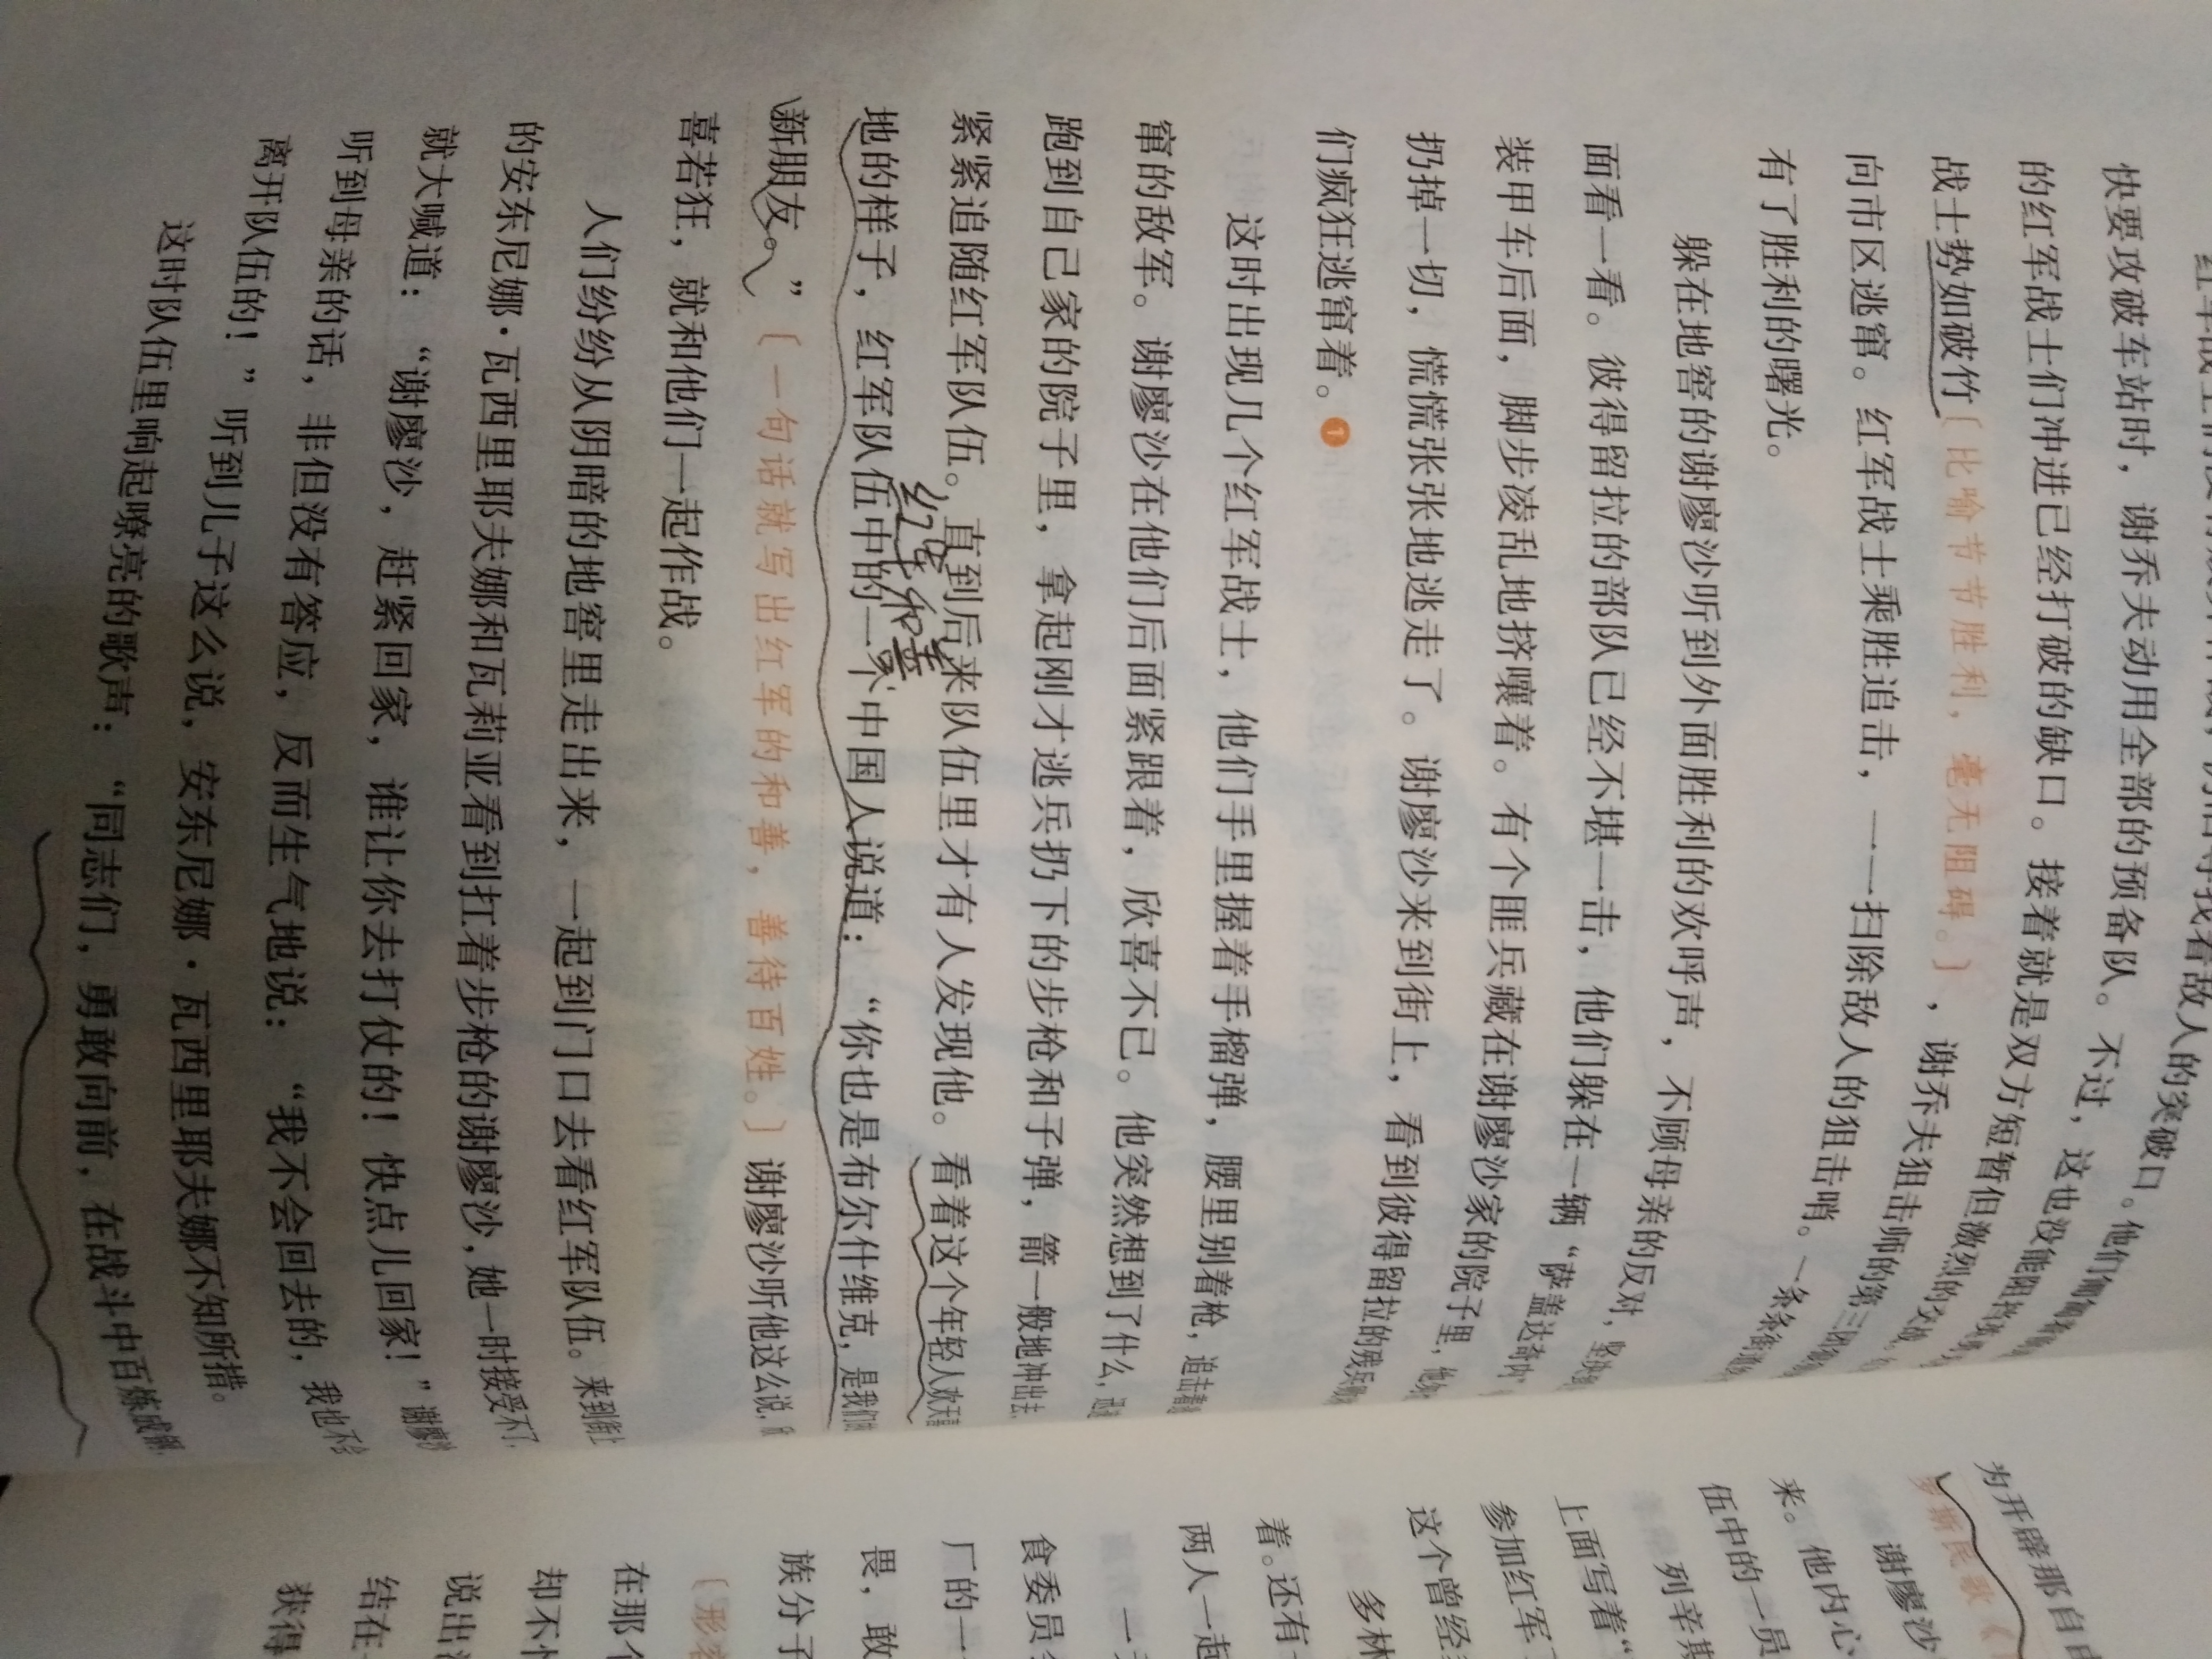 快要攻破车站时，谢乔夫动用全部的预备队。不过，这也没能阻挡
的红军战士们冲进已经打破的缺口。接着就是双方短暂但激烈的交战。
战士势如破竹〔比喻节节胜利，毫无阻碍。〕，谢乔夫狙击师的第三团
向市区逃窜。红军战士乘胜追击，一一扫除敌人的狙击哨。一条条街道
有了胜利的曙光。
躲在地窖的谢廖沙听到外面胜利的欢呼声，不顾母亲的反对，坚
面看一看。彼得留拉的部队已经不堪一击，他们躲在一辆“萨盖达奇
装甲车后面，脚步凌乱地挤嚷着。有个匪兵藏在谢廖沙家的院子里，他
扔掉一切，慌慌张张地逃走了。谢廖沙来到街上，看到彼得留拉的残兵
们疯狂逃窜着。❶
这时出现几个红军战士，他们手里握着手榴弹，腰里别着枪，追击着
窜的敌军。谢廖沙在他们后面紧跟着，欣喜不已。他突然想到了什么，
跑到自己家的院子里，拿起刚才逃兵扔下的步枪和子弹，箭一般地冲出去，
紧紧追随红军队伍。直到后来队伍里才有人发现他。看着这个年轻人欢天喜
红军和善
地的样子，红军队伍中的一个中国人说道：“你也是布尔什维克，是我们的
新朋友。”〔一句话就写出红军的和善，善待百姓。〕谢廖沙听他这么说，欣
喜若狂，就和他们一起作战。
人们纷纷从阴暗的地窖里走出来，一起到门口去看红军队伍。来到街上
的安东尼娜·瓦西里耶夫娜和瓦莉亚看到扛着步枪的谢廖沙，她一时接受不了，
就大喊道：“谢廖沙，赶紧回家，谁让你去打仗的！快点儿回家！”谢廖沙
听到母亲的话，非但没有答应，反而生气地说：“我不会回去的，我也不会
离开队伍的！”听到儿子这么说，安东尼娜·瓦西里耶夫娜不知所措。
这时队伍里响起嘹亮的歌声：“同志们，勇敢向前，在战斗中百炼成钢，
为开辟那自由
罗斯民歌《
谢廖沙
来。他内心
伍中的一员
列辛斯
上面写着“
参加红军
这个曾经
多林
着。还有
两人一起
一
食委员
厂的一
畏，敢
族分子
〔形容
在那个
却不
说出
结在
获得